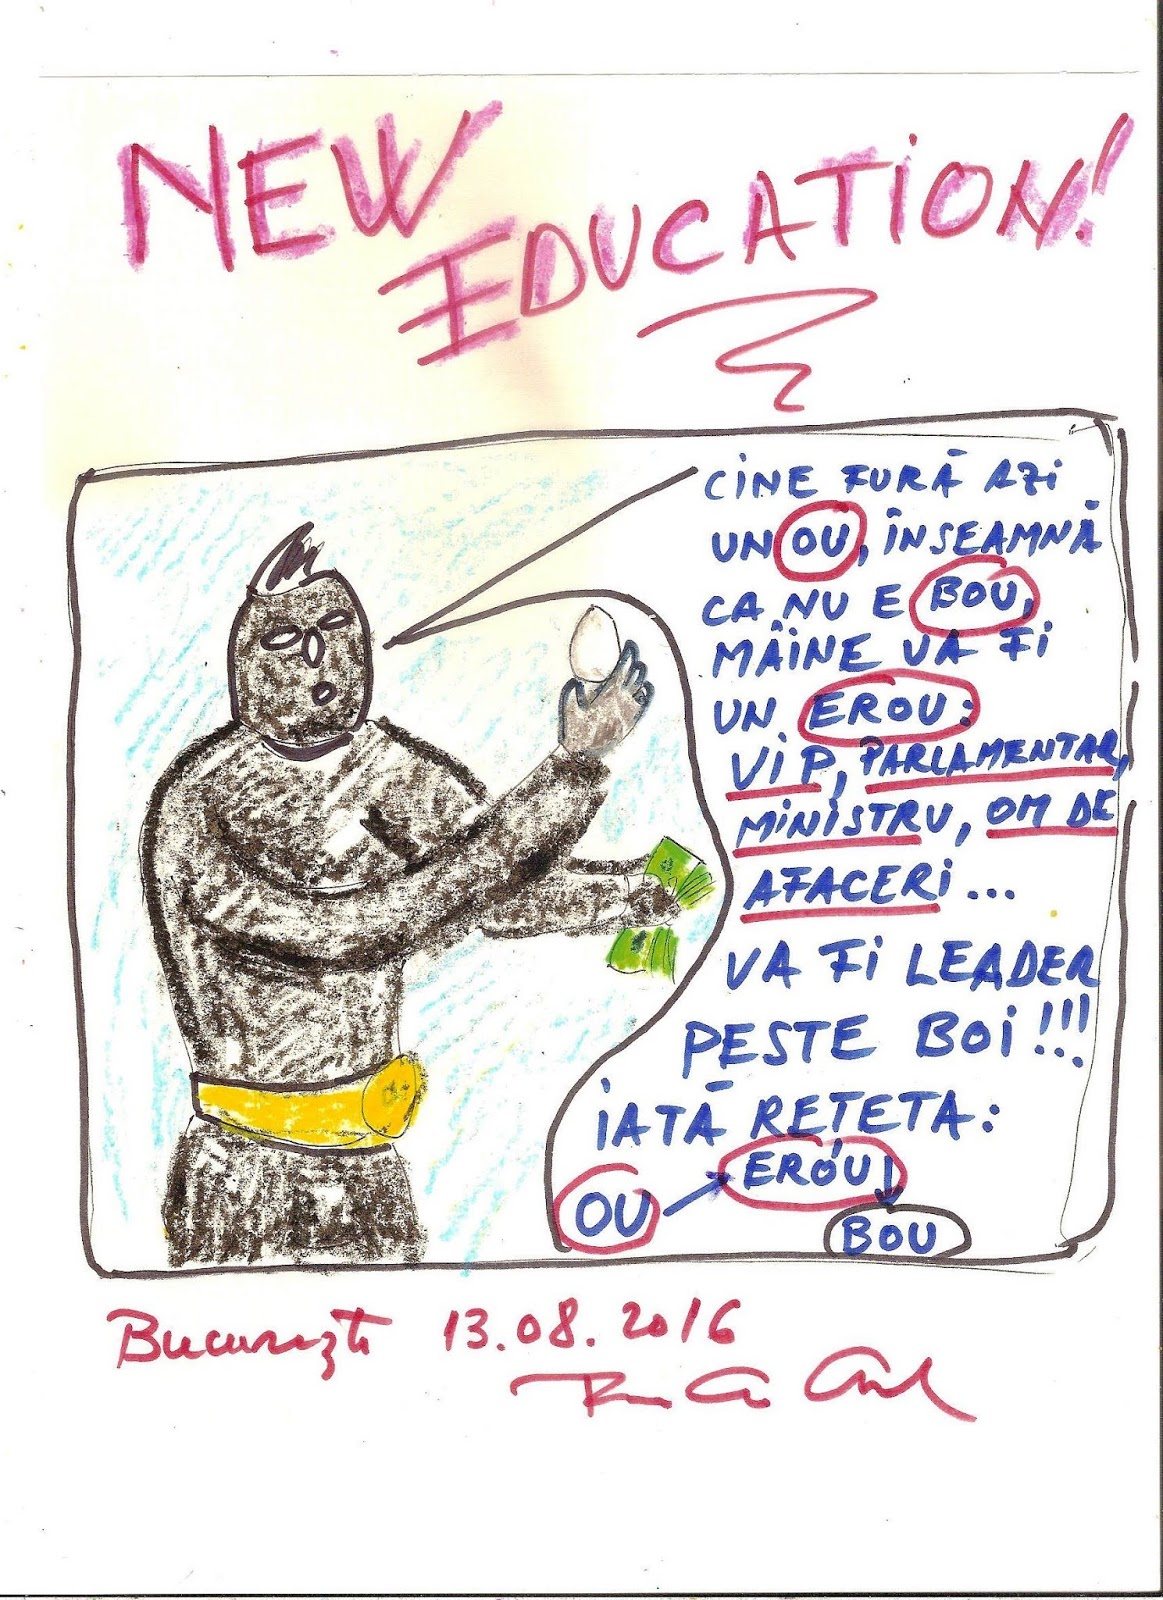 NEW
EDUCATION!
CINE FURĂ AZI
UN OU, ÎNSEAMNĂ
CA NU E BOU,
MÂINE VA FI
UN EROU:
VIP, PARLAMENTAR,
MINISTRU, OM DE
AFACERI...
VA FI LEADER
PESTE BOI!!!
IATĂ REȚETA:
OU → EROU
BOU
București 13.08.2016